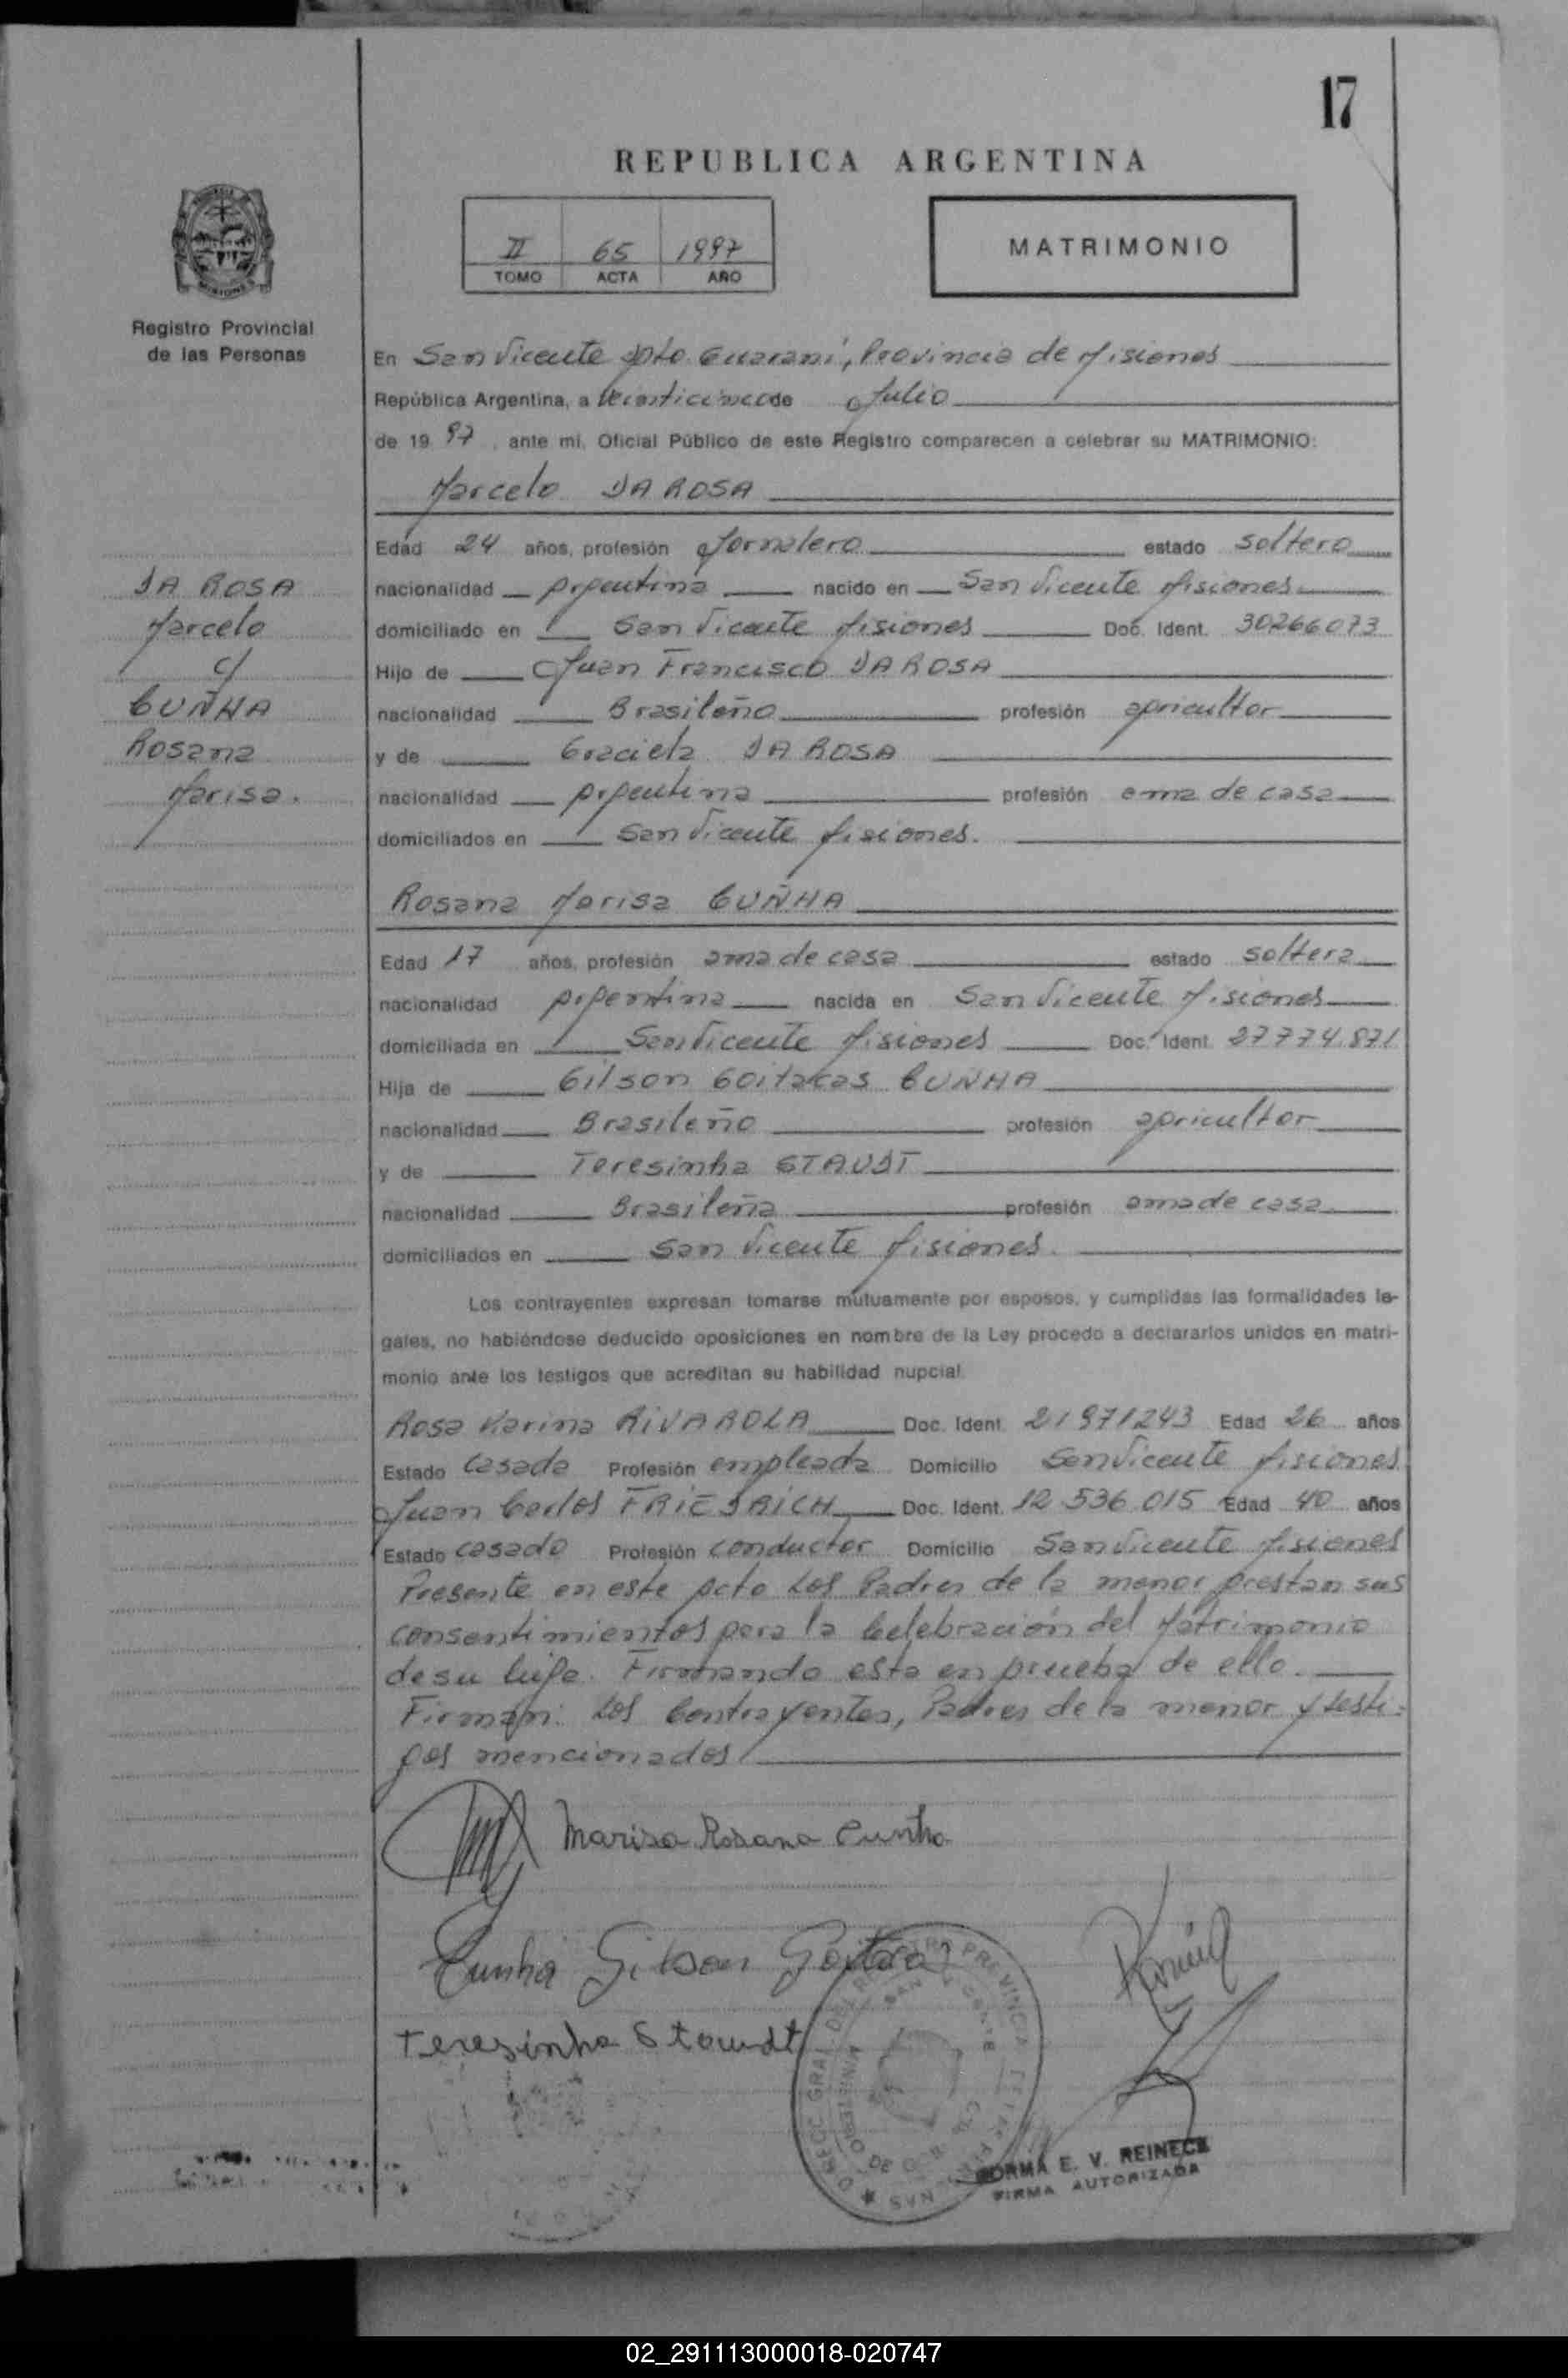 17
REPUBLICA ARGENTINA
II 65 1997
TOMO ACTA AÑO
MATRIMONIO
MISIONES
Registro Provincial
de las Personas
En San Vicente Dpto. Guaraní, Provincia de Misiones
República Argentina, a veinticinco de Julio
de 19 97, ante mi, Oficial Público de este Registro comparecen a celebrar su MATRIMONIO:
Marcelo DA ROSA
Edad 24 años, profesión Jornalero estado soltero
nacionalidad Argentina nacido en San Vicente Misiones
domiciliado en San Vicente Misiones Doc. Ident. 30266073
Hijo de Juan Francisco DA ROSA
nacionalidad Brasileño profesión agricultor
y de Graciela DA ROSA
nacionalidad Argentina profesión ama de casa
domiciliados en San Vicente Misiones.
DA ROSA
Marcelo
c/
CUÑHA
Rosana
Marisa.
Rosana Marisa CUÑHA
Edad 17 años, profesión ama de casa estado soltera
nacionalidad Argentina nacida en San Vicente Misiones
domiciliada en San Vicente Misiones Doc. Ident. 27774.871
Hija de Gilson Goitacas CUNHA
nacionalidad Brasileño profesión agricultor
y de Teresinha STAUDT
nacionalidad Brasileña profesión ama de casa
domiciliados en San Vicente Misiones.
Los contrayentes expresan tomarse mutuamente por esposos, y cumplidas las formalidades le-
gales, no habiéndose deducido oposiciones en nombre de la Ley procedo a declararlos unidos en matri-
monio ante los testigos que acreditan su habilidad nupcial
Rosa Karina RIVAROLA Doc. Ident. 21971243 Edad 26 años
Estado Casada Profesión empleada Domicilio San Vicente Misiones
Juan Carlos FRIEDRICH Doc. Ident. 12 536 015 Edad 40 años
Estado casado Profesión conductor Domicilio San Vicente Misiones
Presente en este Acto Los Padres de la menor prestan sus
consentimientos para la Celebración del Matrimonio
de su hija. Firmando esta en prueba de ello.
Firman: Los Contrayentes, Padres de la menor y testi-
gos mencionados
Marisa Rosana Cunha
Cunha Gilson Goitacas
Teresinha Staudt
NORMA E. V. REINECK
FIRMA AUTORIZADA
02_291113000018-020747